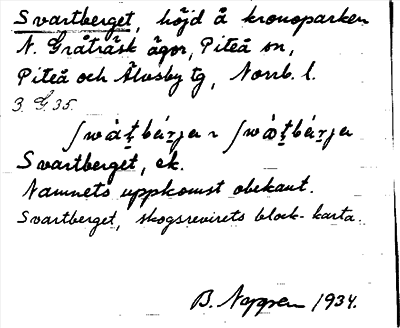 Svartberget, höjd å kronoparken
N. Gråträsk ägor, Piteå sn,
Piteå och Älvsby tg, Norrb. l.
3. G. 35.
Svartberget, ek.
Namnets uppkomst obekant.
Svartberget, skogsrevirets block-karta.
B. 1934.